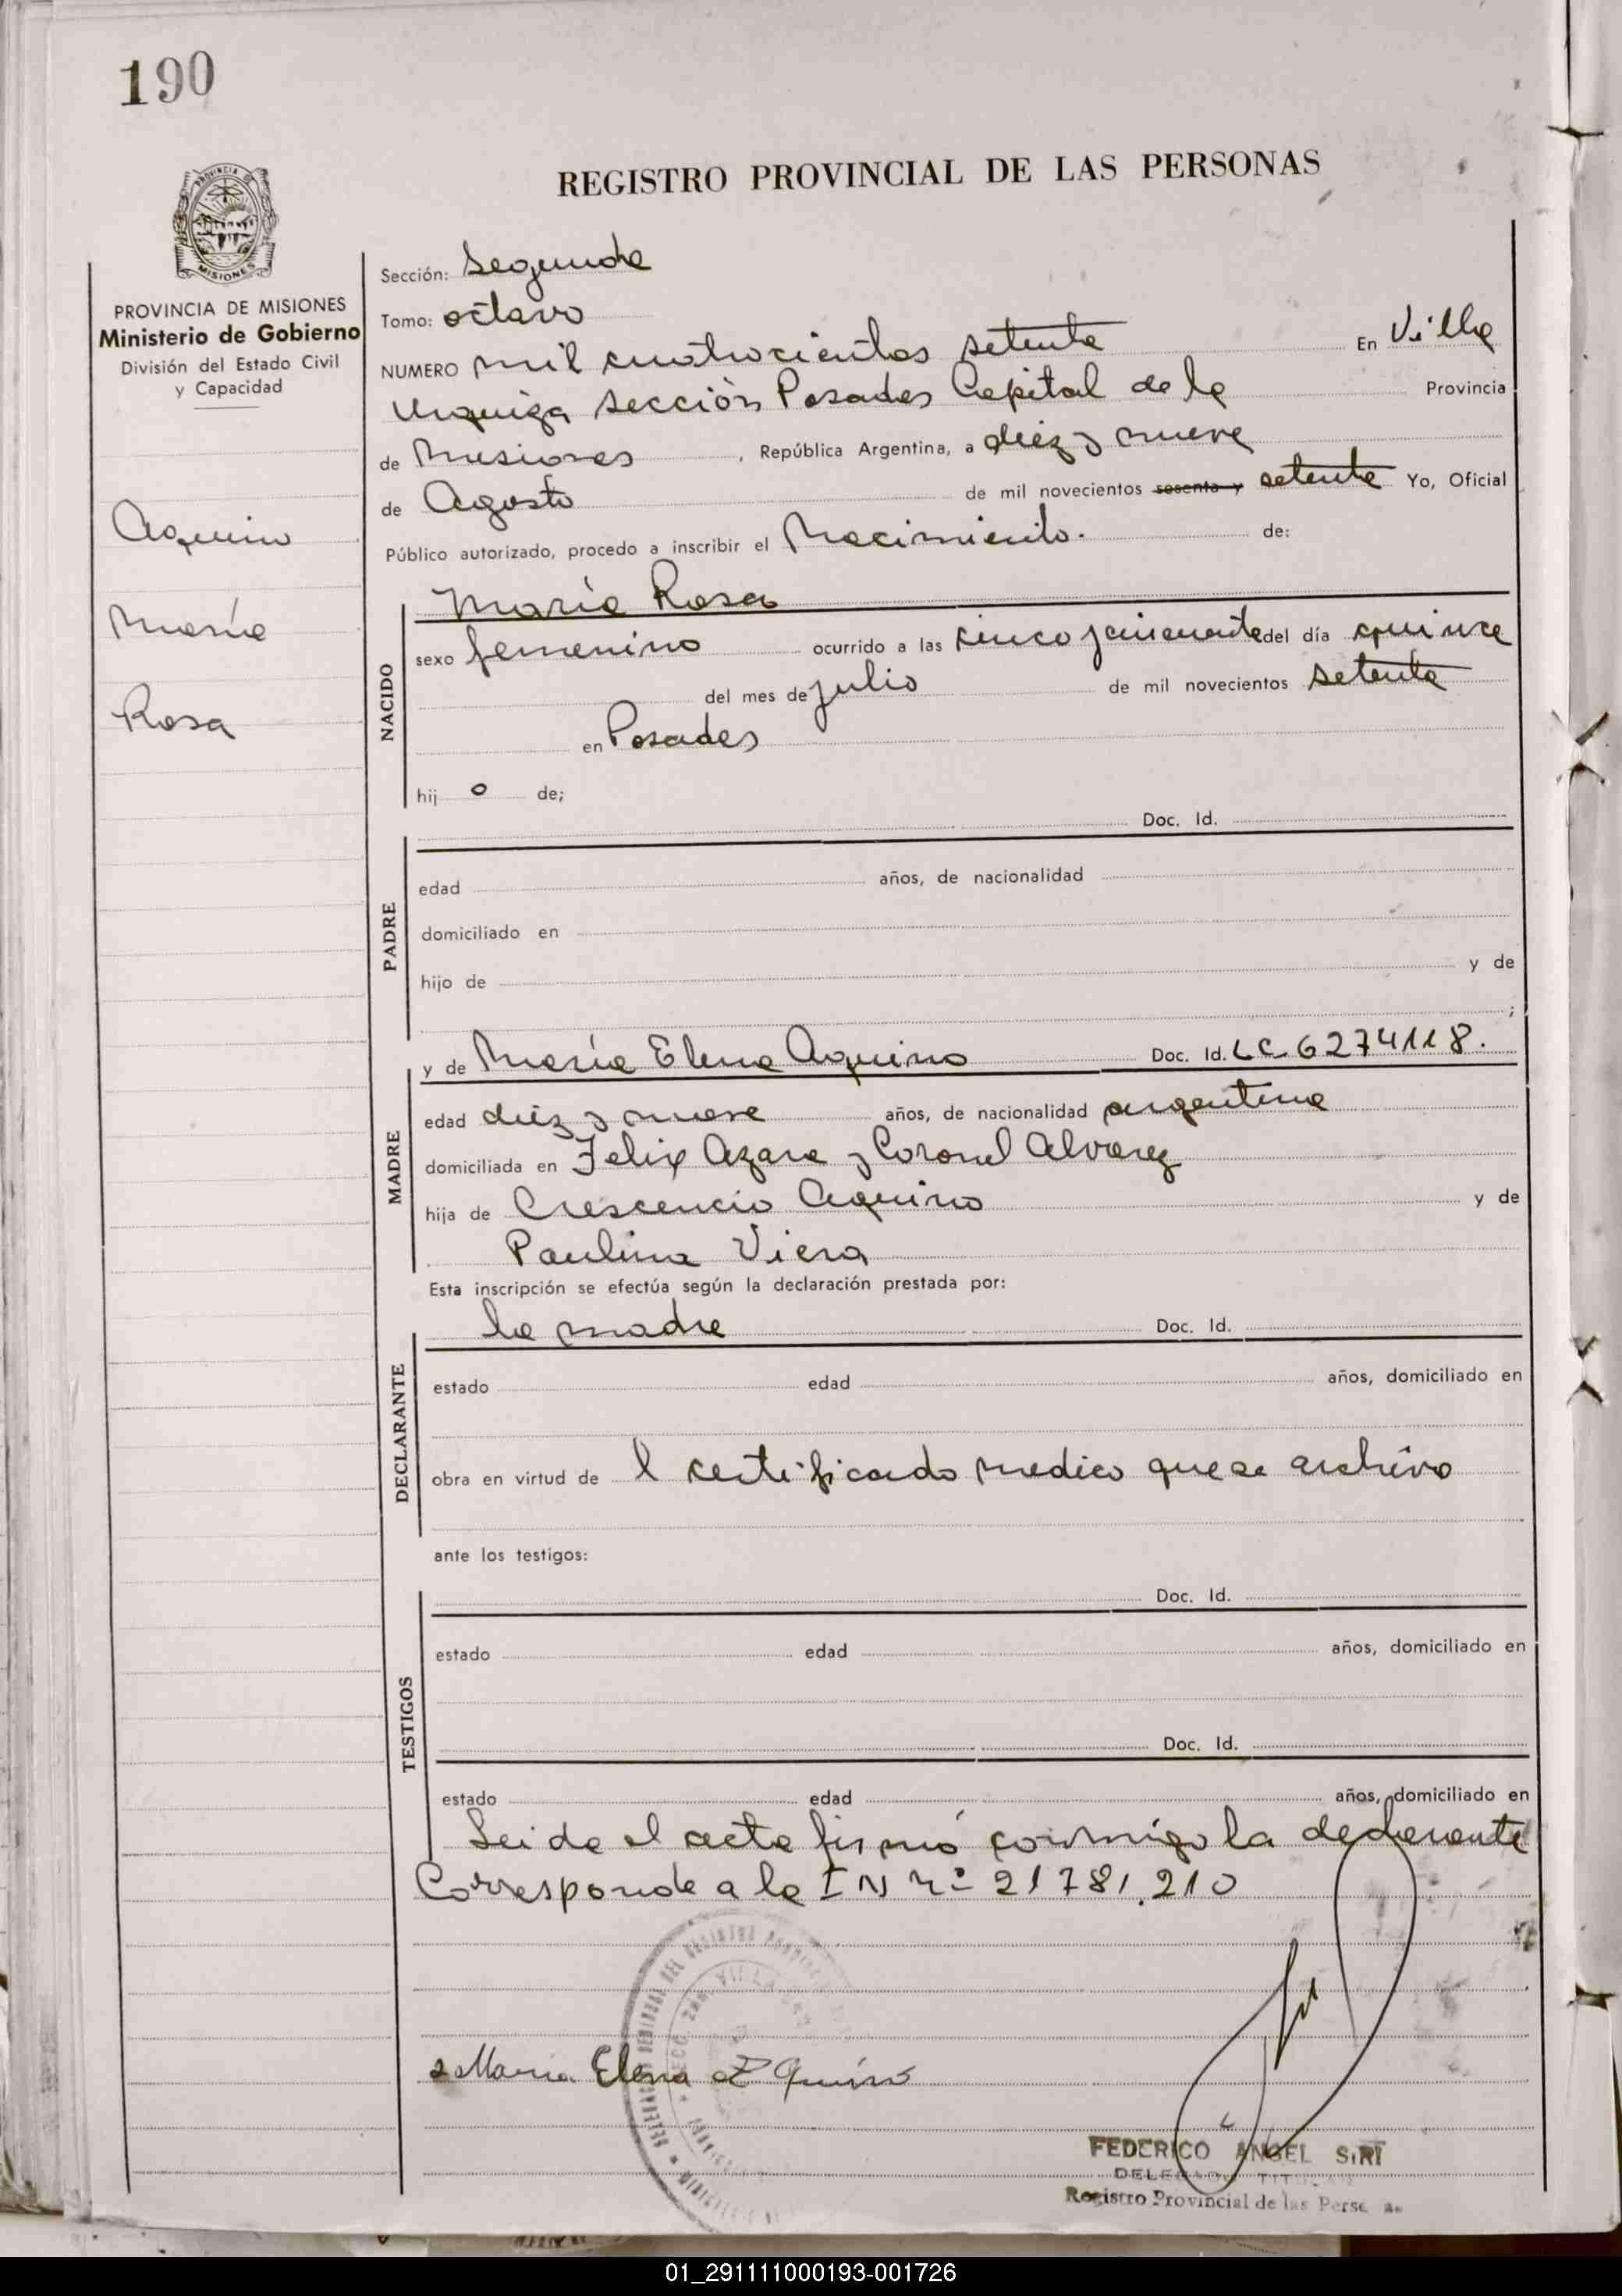 190
REGISTRO PROVINCIAL DE LAS PERSONAS
PROVINCIA DE MISIONES
Ministerio de Gobierno
División del Estado Civil
y Capacidad
Aquino
María
Rosa
Sección: Segunda
Tomo: octavo
NUMERO mil cuatrocientos setenta En Villa
Urquiza sección Posadas Capital de la Provincia
de Misiones, República Argentina, a diez y nueve
de Agosto de mil novecientos sesenta y setenta Yo, Oficial
Público autorizado, procedo a inscribir el Nacimiento. de:
NACIDO
María Rosa
sexo femenino ocurrido a las cinco del día quince
del mes de julio de mil novecientos setenta
en Posadas
hij o de;
Doc. Id.
PADRE
edad años, de nacionalidad
domiciliado en
hijo de y de
;
y de María Elena Aquino Doc. Id. LC 6274118.
MADRE
edad diez y nueve años, de nacionalidad argentina
domiciliada en Felix Azara y Coronel Alvarez
hija de Crescencio Aquino y de
Paulina Viera
Esta inscripción se efectúa según la declaración prestada por:
la madre Doc. Id.
DECLARANTE
estado edad años, domiciliado en
obra en virtud de l certificado medico que se archiva
ante los testigos:
Doc. Id.
TESTIGOS
estado edad años, domiciliado en
Doc. Id.
estado edad años, domiciliado en
Leida el acta firmó conmigo la declarante
Corresponde a la I N nº 21781.210
Maria Elena Aquino
FEDERICO ANGEL SIRI
DELEGADO TITULAR
Registro Provincial de las Personas
01_291111000193-001726